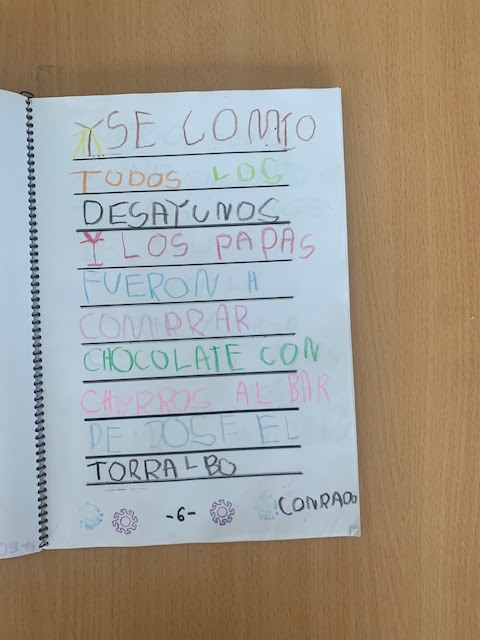 Y SE COMIO
TODOS LOS
DESAYUNOS
Y LOS PAPAS
FUERON A
COMPRAR
CHOCOLATE CON
CHURROS AL BAR
DE JOSE EL
TORRALBO
-6-
CONRADO